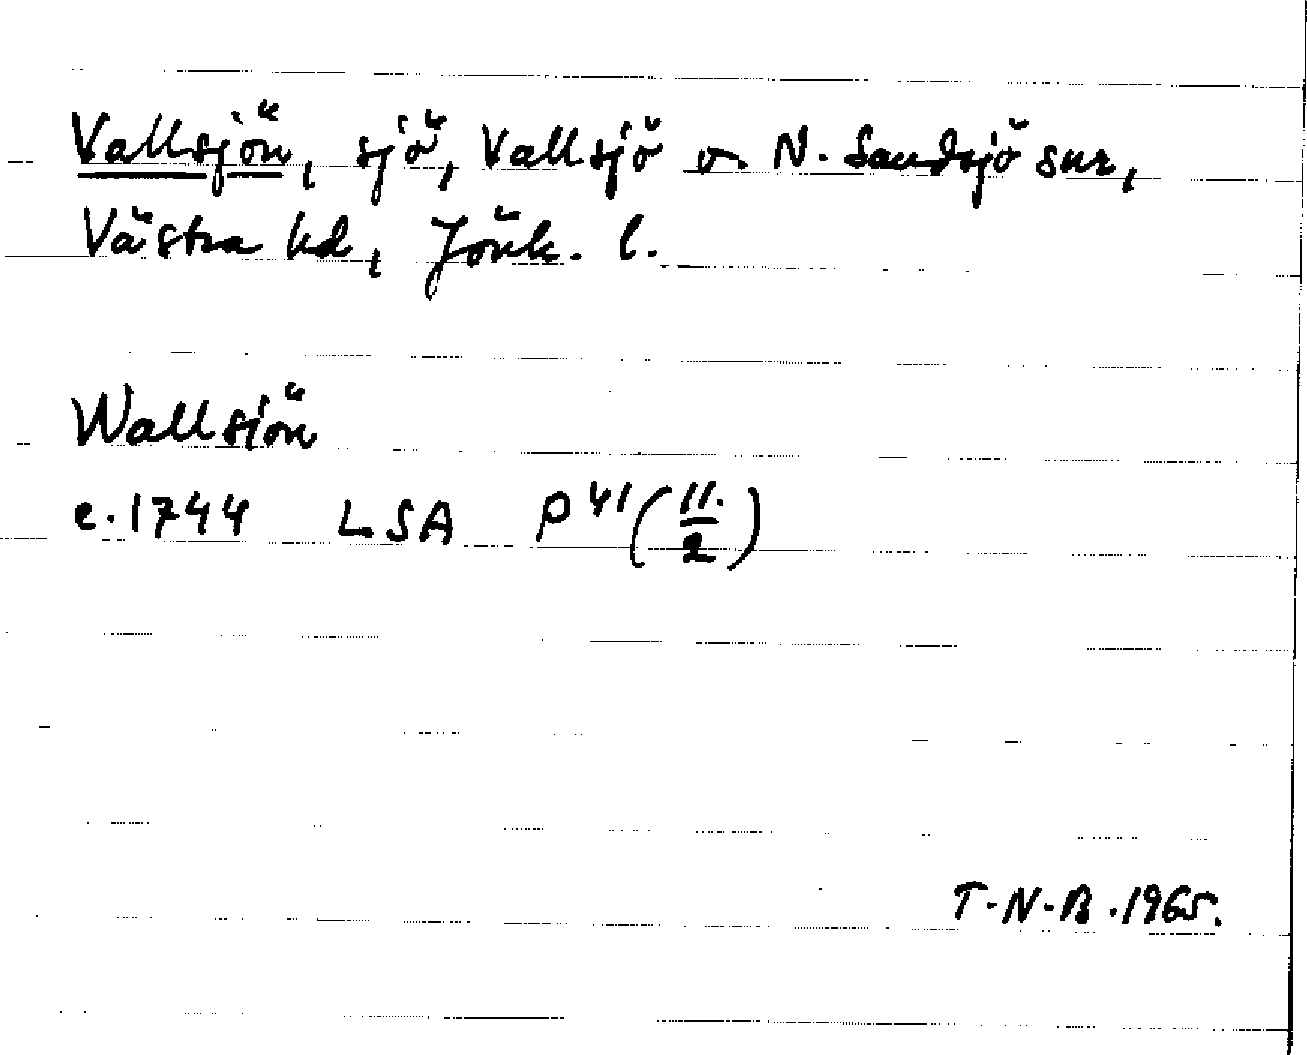 Vallsjön, sjö, Vallsjö o. N. Sandsjö snr,
Västra hd, Jönk. l.
Wallsiön
c. 1744 LSA P 41 (11./2)
T-N-B. 1965.